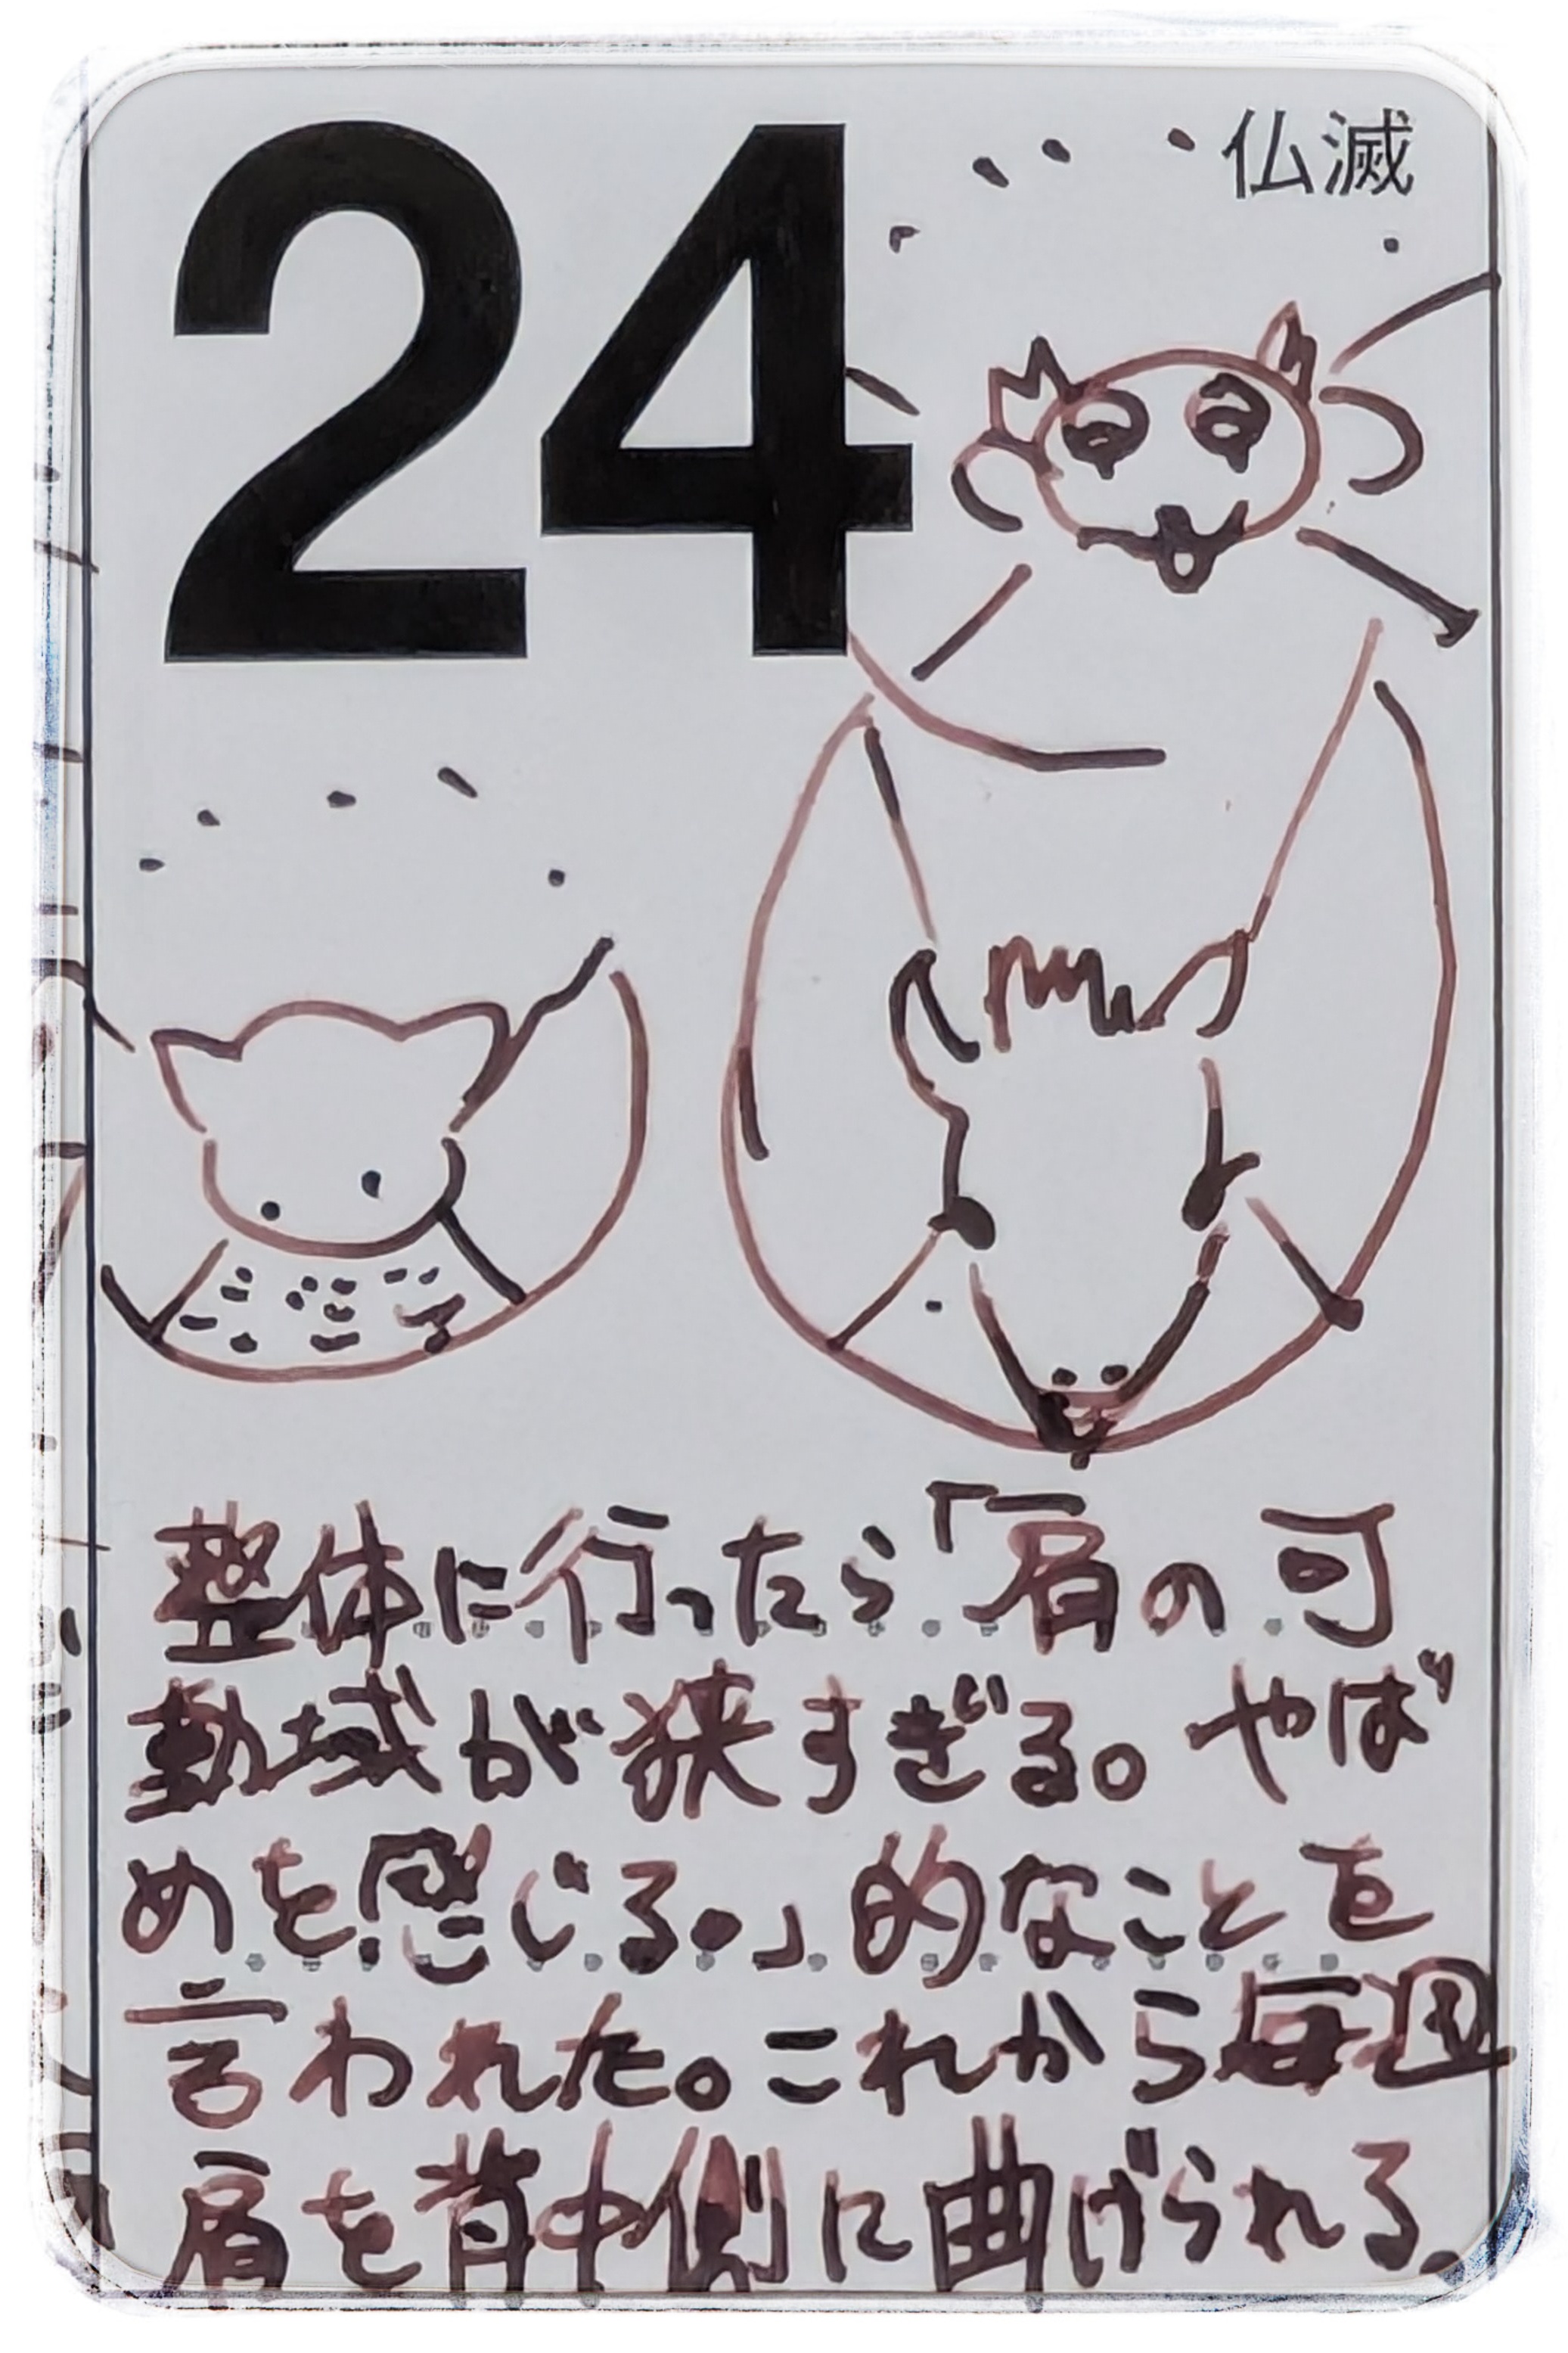 24
仏滅
整体に行ったら「肩の可
動域が狭すぎる。やば
めを感じる。」的なことを
言われた。これから毎週
肩を背中側に曲げられる。